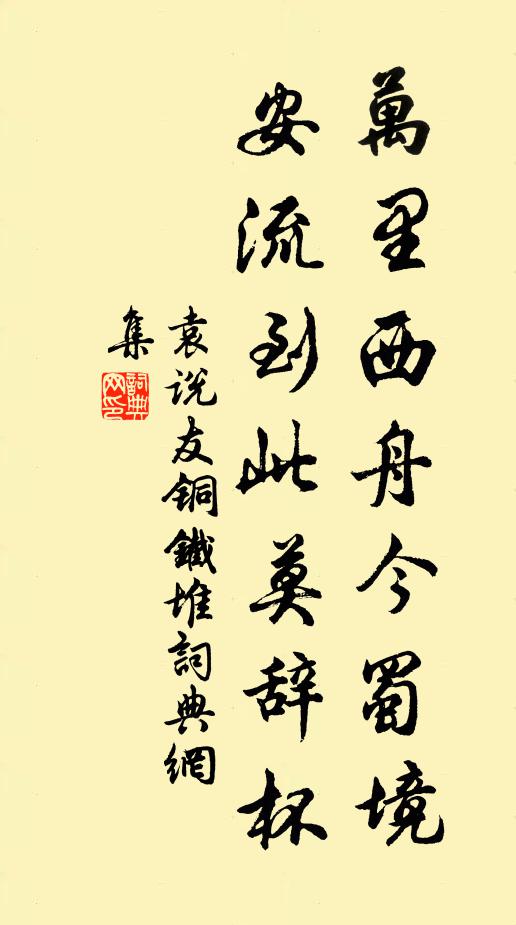 萬里西舟今蜀境
安流到此莫辞杯
袁説友銅鐵堆詞典網
集
詞典网印